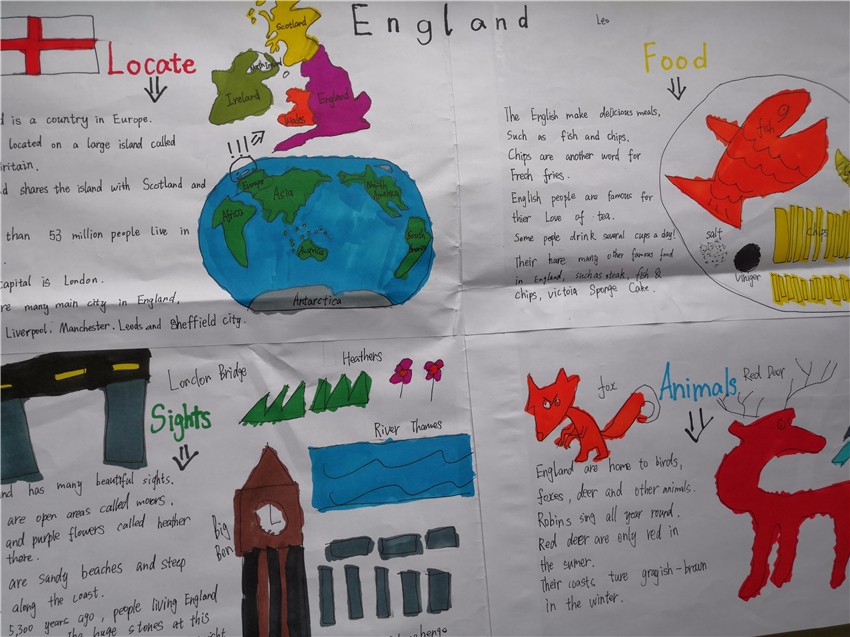 England
Leo
Locate
Scotland
Ireland
Wales
England
!!!
Europe
Asia
North America
Africa
Australia
South America
Antarctica
is a country in Europe.
located on a large island called
ritain.
d shares the island with Scotland and
than 53 million people live in
capital is London.
re many main city in England,
Liverpool. Manchester. Leeds and Sheffield city.
Food
The English make delicious meals,
Such as fish and chips.
Chips are another word for
Fresh fries.
English people are famous for
thier Love of tea.
Some people drink several cups a day!
Their hare many other famous food
in England, such as steak, fish &
chips, victoia Sponge Cake.
fish
salt
Vinger
Chips
London Bridge
Heathers
Sights
River Thames
Big
Ben
nd has many beautiful sights.
are open areas called moors.
and purple flowers called heather
there.
are sandy beaches and steep
along the coast.
5,300 years ago, people living England
the huge stones at this
fox
Animals
Red Deer
England are home to birds,
foxes, deer and other animals.
Robins sing all year round.
Red deer are only red in
the sumer.
Their coasts ture grayish-brown
in the winter.